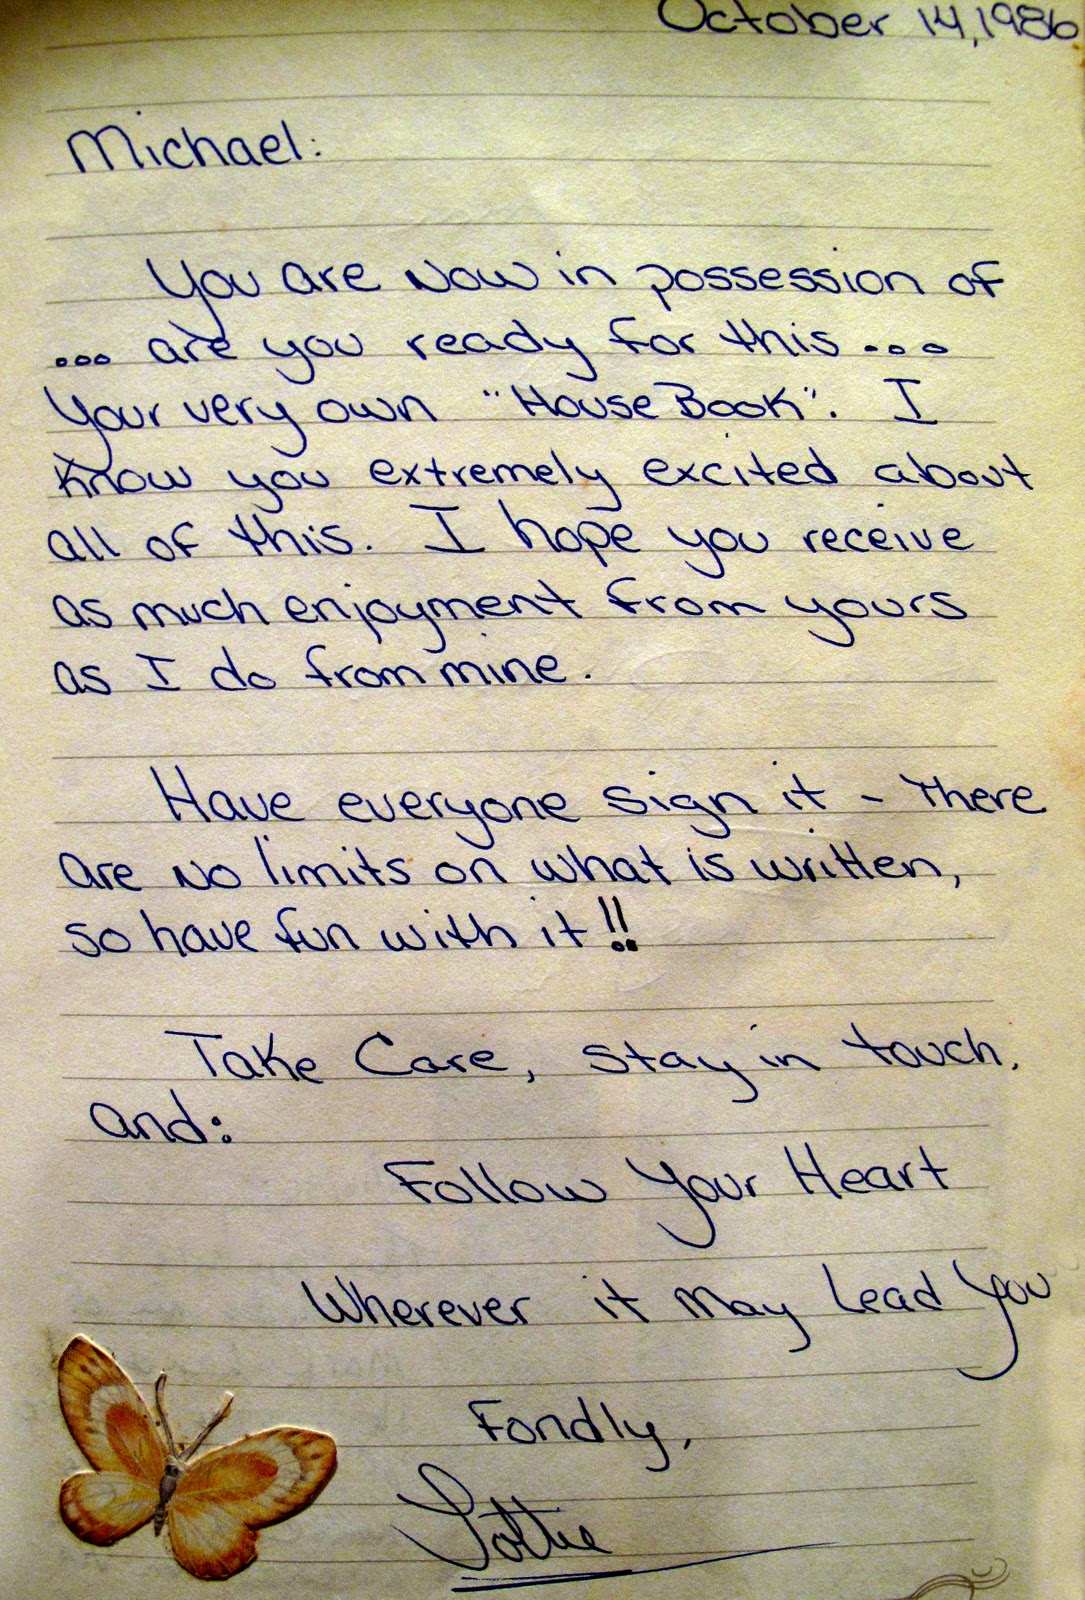 October 14, 1986
Michael:
You are now in possession of
... are you ready for this ...
Your very own "House Book". I
know you extremely excited about
all of this. I hope you receive
as much enjoyment from yours
as I do from mine.
Have everyone sign it - There
are no limits on what is written,
so have fun with it!!
Take Care, stay in touch,
and:
Follow Your Heart
Wherever it May Lead You
Fondly,
Lottie